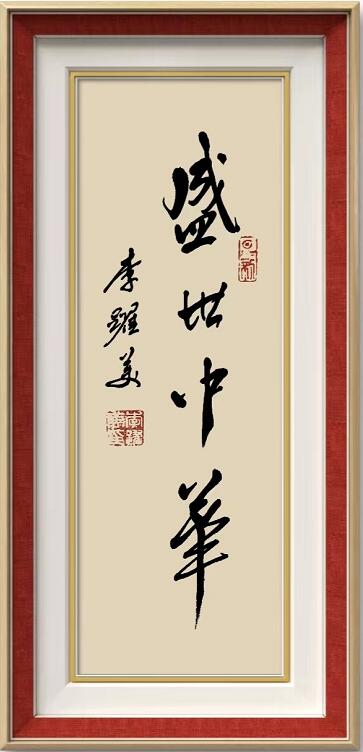 盛世中華
李躍美